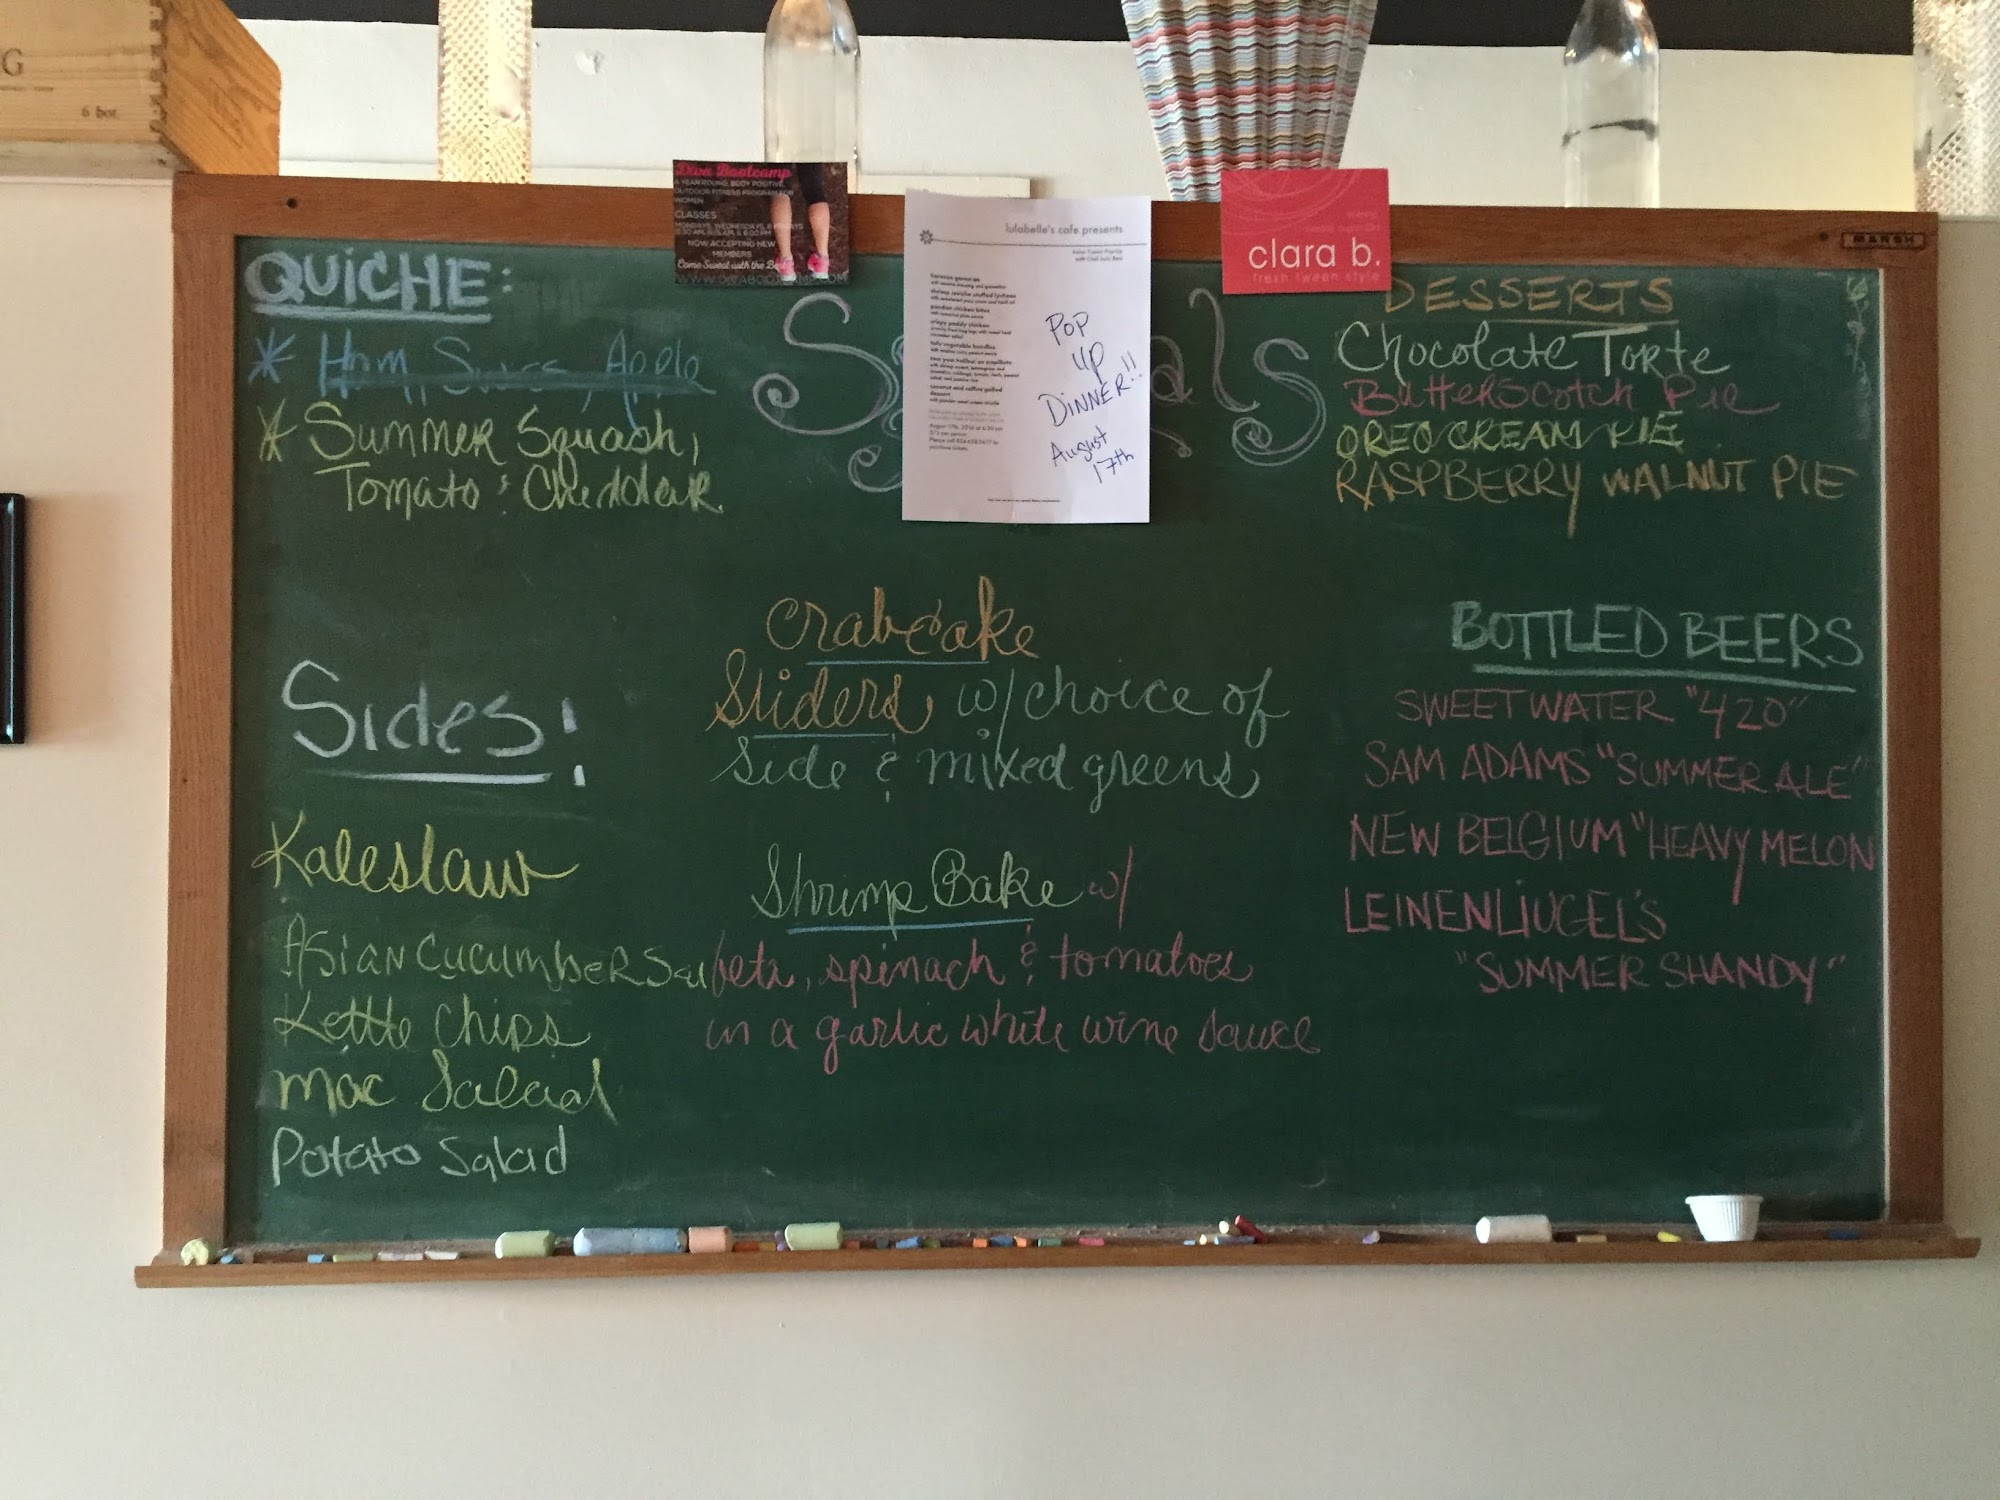 G
6 bot.
Diva Bootcamp
A YEAR ROUND, BODY POSITIVE,
OUTDOOR FITNESS PROGRAM FOR
WOMEN
CLASSES
NOW ACCEPTING NEW
MEMBERS
Come Sweat with the Best
WWW.DIVABOOTCAMPS.COM
lulabelle's cafe presents
crispy paddy chicken
tofu vegetable bundles
dessert
POP
UP
DINNER!!
August
17th
clara b.
fresh tween style
MARSH
QUICHE:
Ham, Swiss, Apple
Summer Squash,
Tomato & Cheddar
Sides:
Kaleslaw
Asian Cucumber Sal
Kettle Chips
Mac Salad
Potato Salad
Crabcake
Sliders w/ choice of
Side & mixed greens
Shrimp Bake w/
feta, spinach & tomatoes
in a garlic white wine sauce
DESSERTS
Chocolate Torte
Butterscotch Pie
OREO CREAM PIE
RASPBERRY WALNUT PIE
BOTTLED BEERS
SWEETWATER "420"
SAM ADAMS "SUMMER ALE"
NEW BELGIUM "HEAVY MELON
LEINENLIUGEL'S
"SUMMER SHANDY"